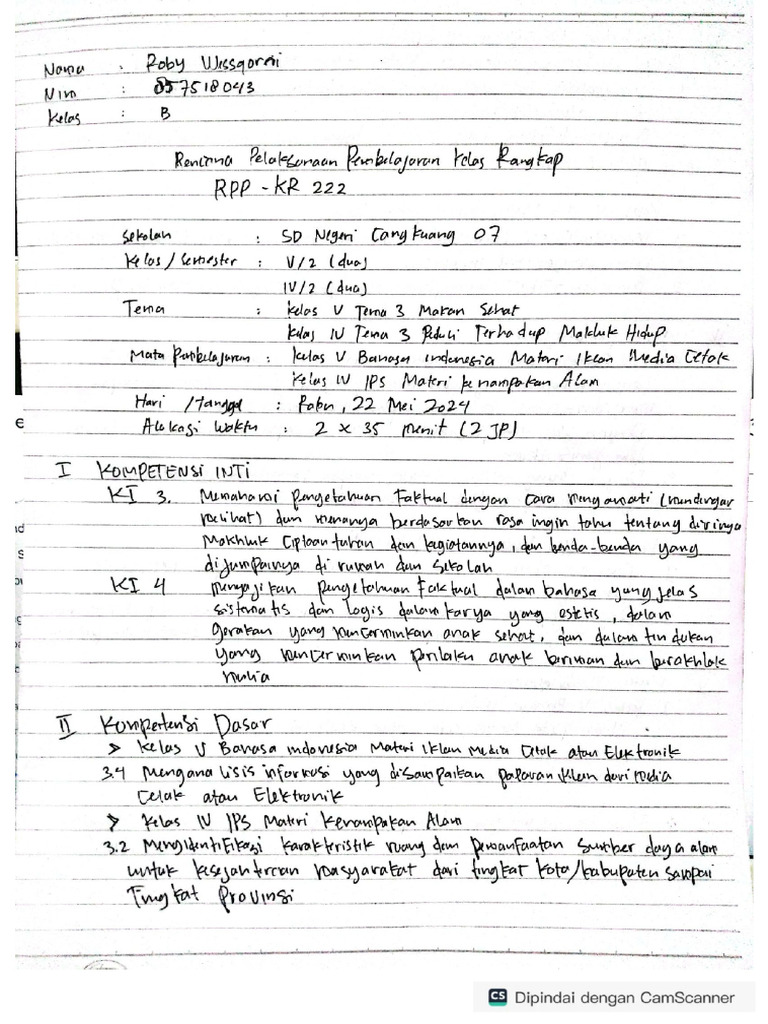 Nama : Roby Wissqorni
Nim : 857518043
Kelas : B
Rencana Pelaksanaan Pembelajaran Kelas Rangkap
RPP - KR 222
Sekolah : SD Negeri Cangkuang 07
Kelas / Semester : V/2 (dua)
IV/2 (dua)
Tema : Kelas V Tema 3 Makan Sehat
Kelas IV Tema 3 Peduli Terhadap Makhluk Hidup
Mata Pembelajaran : Kelas V Bahasa indonesia Materi Iklan Media Cetak
Kelas IV IPS Materi Kenampakan Alam
Hari / Tanggal : Rabu, 22 Mei 2024
Alokasi Waktu : 2 x 35 menit (2 JP)
I KOMPETENSI INTI
KI 3. Memahami pengetahuan Faktual dengan cara mengamati (mendengar
melihat) dan menanya berdasarkan rasa ingin tahu tentang dirinya
Makhluk Ciptaan tuhan dan kegiatannya, dan benda-benda yang
dijumpainya di rumah dan Sekolah
KI 4 menyajikan pengetahuan Faktual dalam bahasa yang jelas
sistematis dan logis dalam karya yang estetis, dalam
gerakan yang mencerminkan anak sehat, dan dalam tindakan
yang mencerminkan perilaku anak beriman dan berakhlak
mulia
II Kompetensi Dasar
> Kelas V Bahasa indonesia Materi Iklan Media Cetak atau Elektronik
3.4 Menganalisis informasi yang disampaikan paparan iklan dari media
Cetak atau Elektronik
> Kelas IV IPS Materi Kenampakan Alam
3.2 Mengidentifikasi karakteristik ruang dan pemanfaatan sumber daya alam
untuk kesejahteraan masyarakat dari tingkat kota/kabupaten sampai
Tingkat Provinsi
CS Dipindai dengan CamScanner